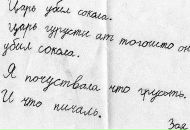 Царь убил сокала.
Царь груусти ат тогошто он
убил сокола.
Я почуствала что грусть.
И что пичаль.
Зое